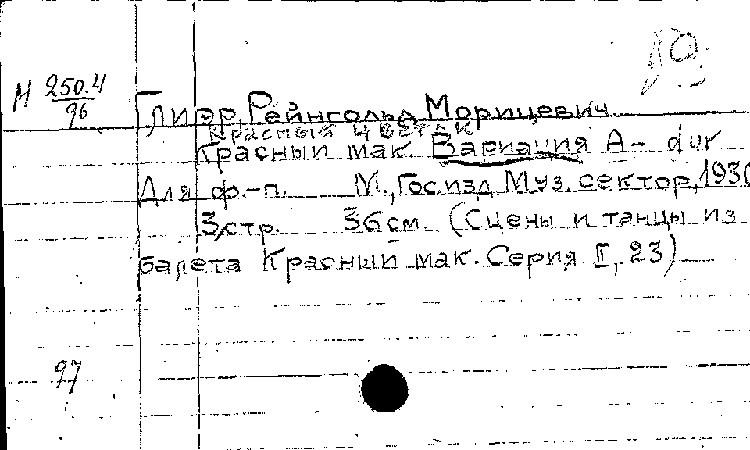 М 250.4
96
Глиэр, Рейнгольд Морицевич
Красный цветок
Красный мак Вариация A-dur
Для ф.-п. М., Гос.изд Муз. сектор, 1930
3 стр. 36 см (Сцены и танцы из
балета Красный мак. Серия I, 23)
97